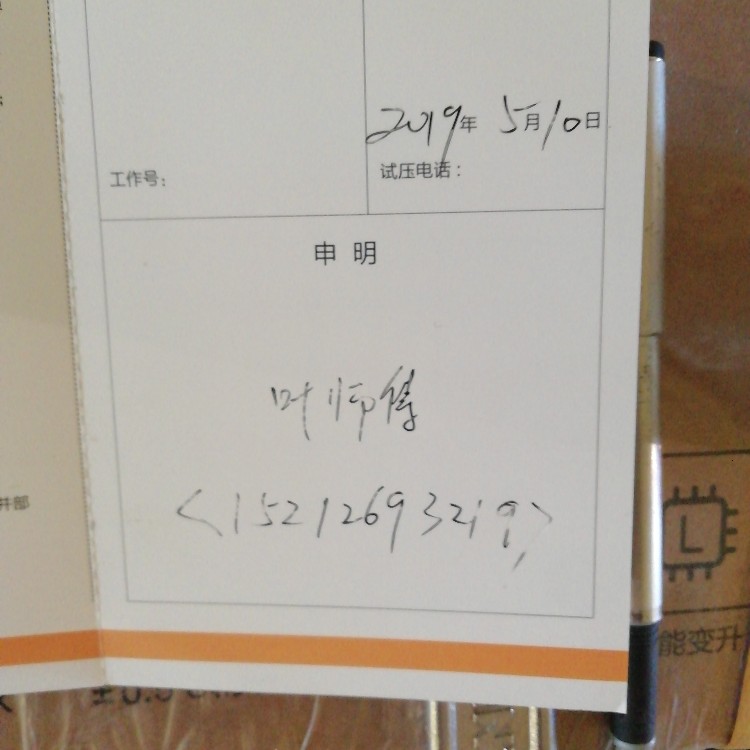 2019年 5月10日
工作号：
试压电话：
申明
叶师傅
<15212693219>
件部
L
能变升